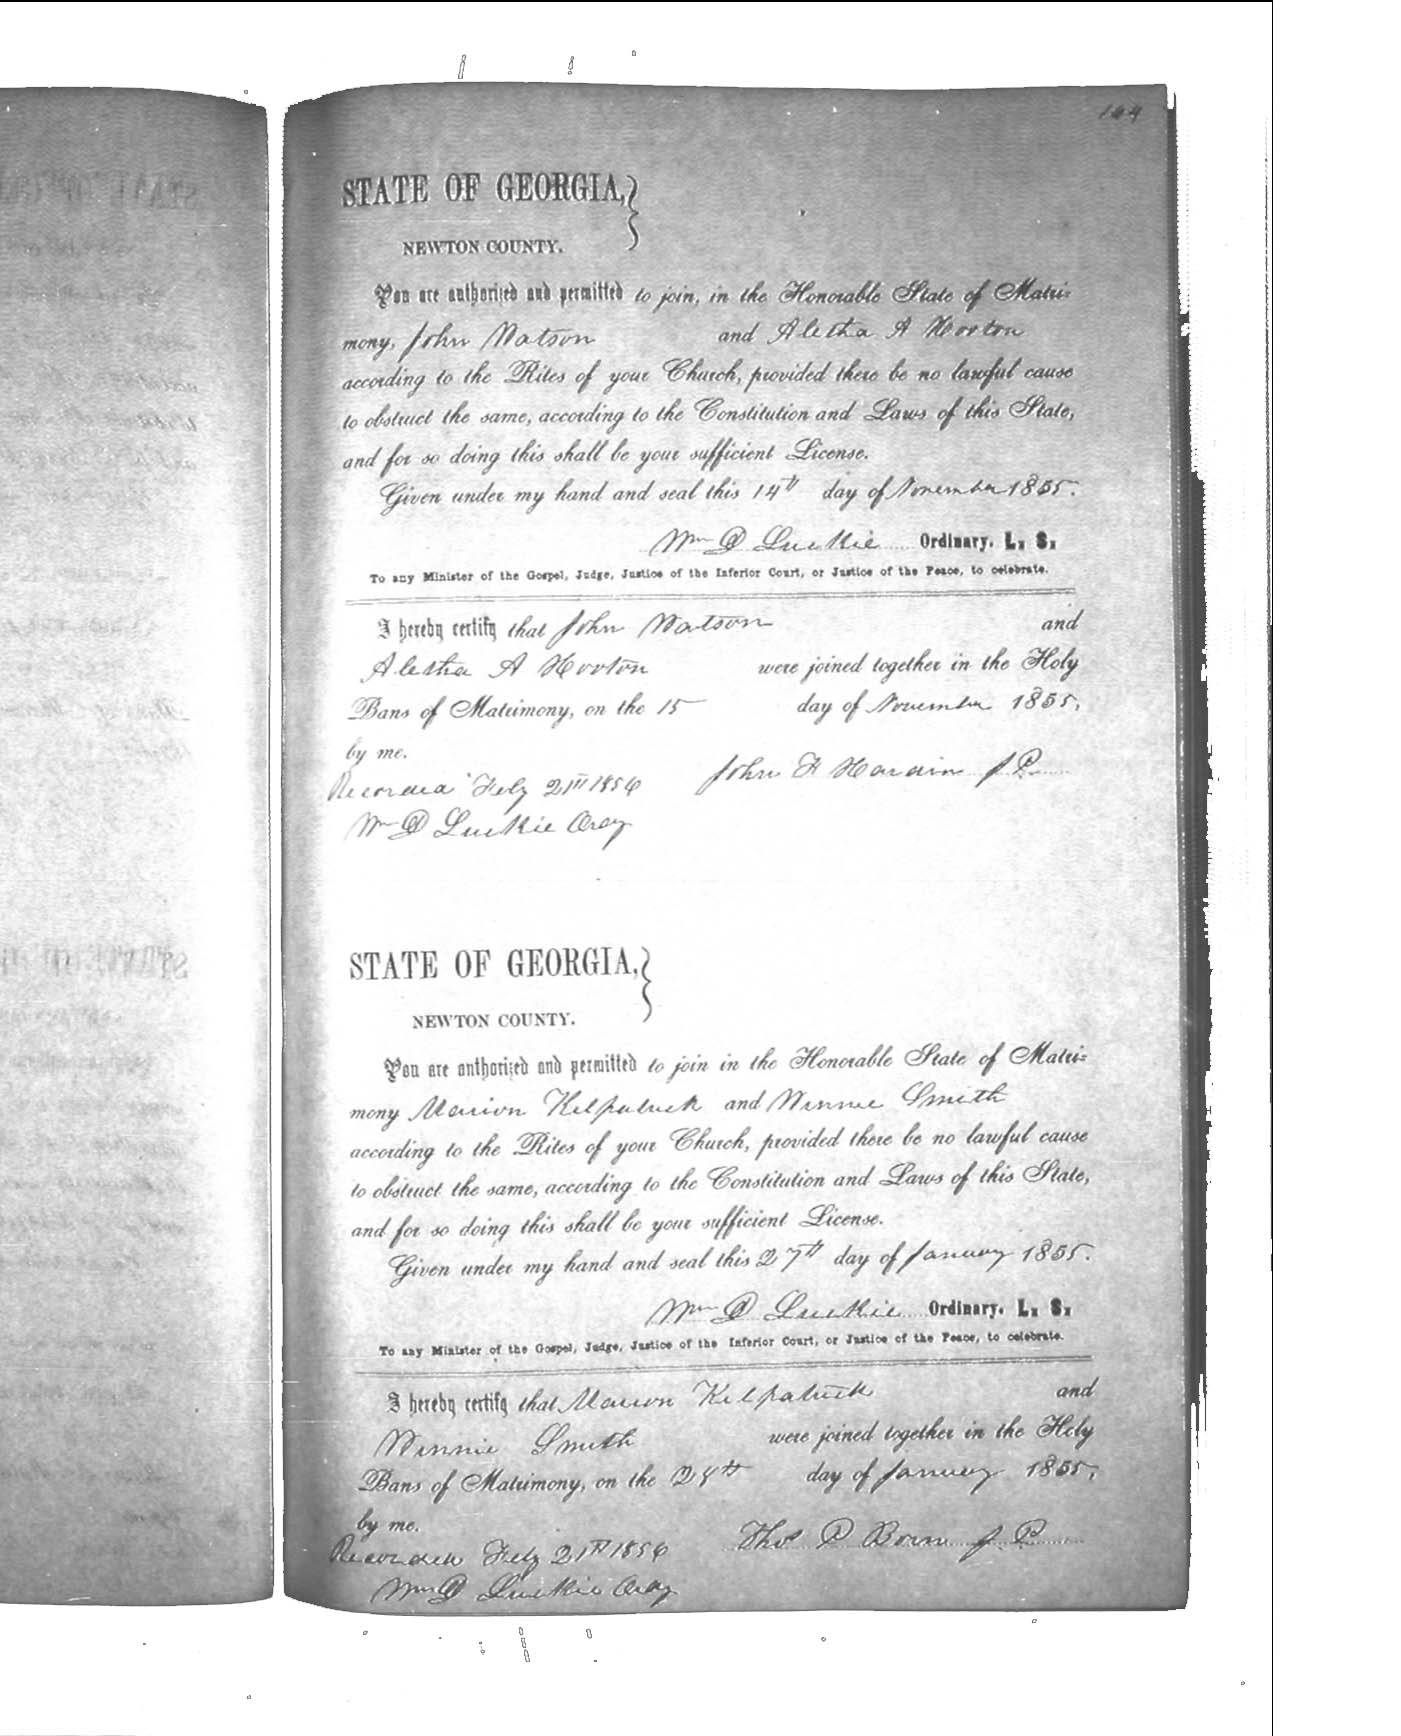 164
STATE OF GEORGIA,
NEWTON COUNTY.
You are authorized and permitted to join, in the Honorable State of Matri-
mony, John Watson and Aletha A Horton
according to the Rites of your Church, provided there be no lawful cause
to obstruct the same, according to the Constitution and Laws of this State,
and for so doing this shall be your sufficient License.
Given under my hand and seal this 14th day of November 1855.
Wm D Luckie Ordinary. L. S.
To any Minister of the Gospel, Judge, Justice of the Inferior Court, or Justice of the Peace, to celebrate.
I hereby certify that John Watson and
Aletha A Horton were joined together in the Holy
Bans of Matrimony, on the 15 day of November 1855,
by me.
John F Hardin J P
Recorded Feby 21st 1856
Wm D Luckie Ordy
STATE OF GEORGIA,
NEWTON COUNTY.
You are authorized and permitted to join in the Honorable State of Matri-
mony Marion Kilpatrick and Winnie Smith
according to the Rites of your Church, provided there be no lawful cause
to obstruct the same, according to the Constitution and Laws of this State,
and for so doing this shall be your sufficient License.
Given under my hand and seal this 27th day of January 1855.
Wm D Luckie Ordinary. L. S.
To any Minister of the Gospel, Judge, Justice of the Inferior Court, or Justice of the Peace, to celebrate.
I hereby certify that Marion Kilpatrick and
Winnie Smith were joined together in the Holy
Bans of Matrimony, on the 28th day of January 1855,
by me.
Thos P Born J. P.
Recorded Feby 21st 1856
Wm D Luckie Ordy